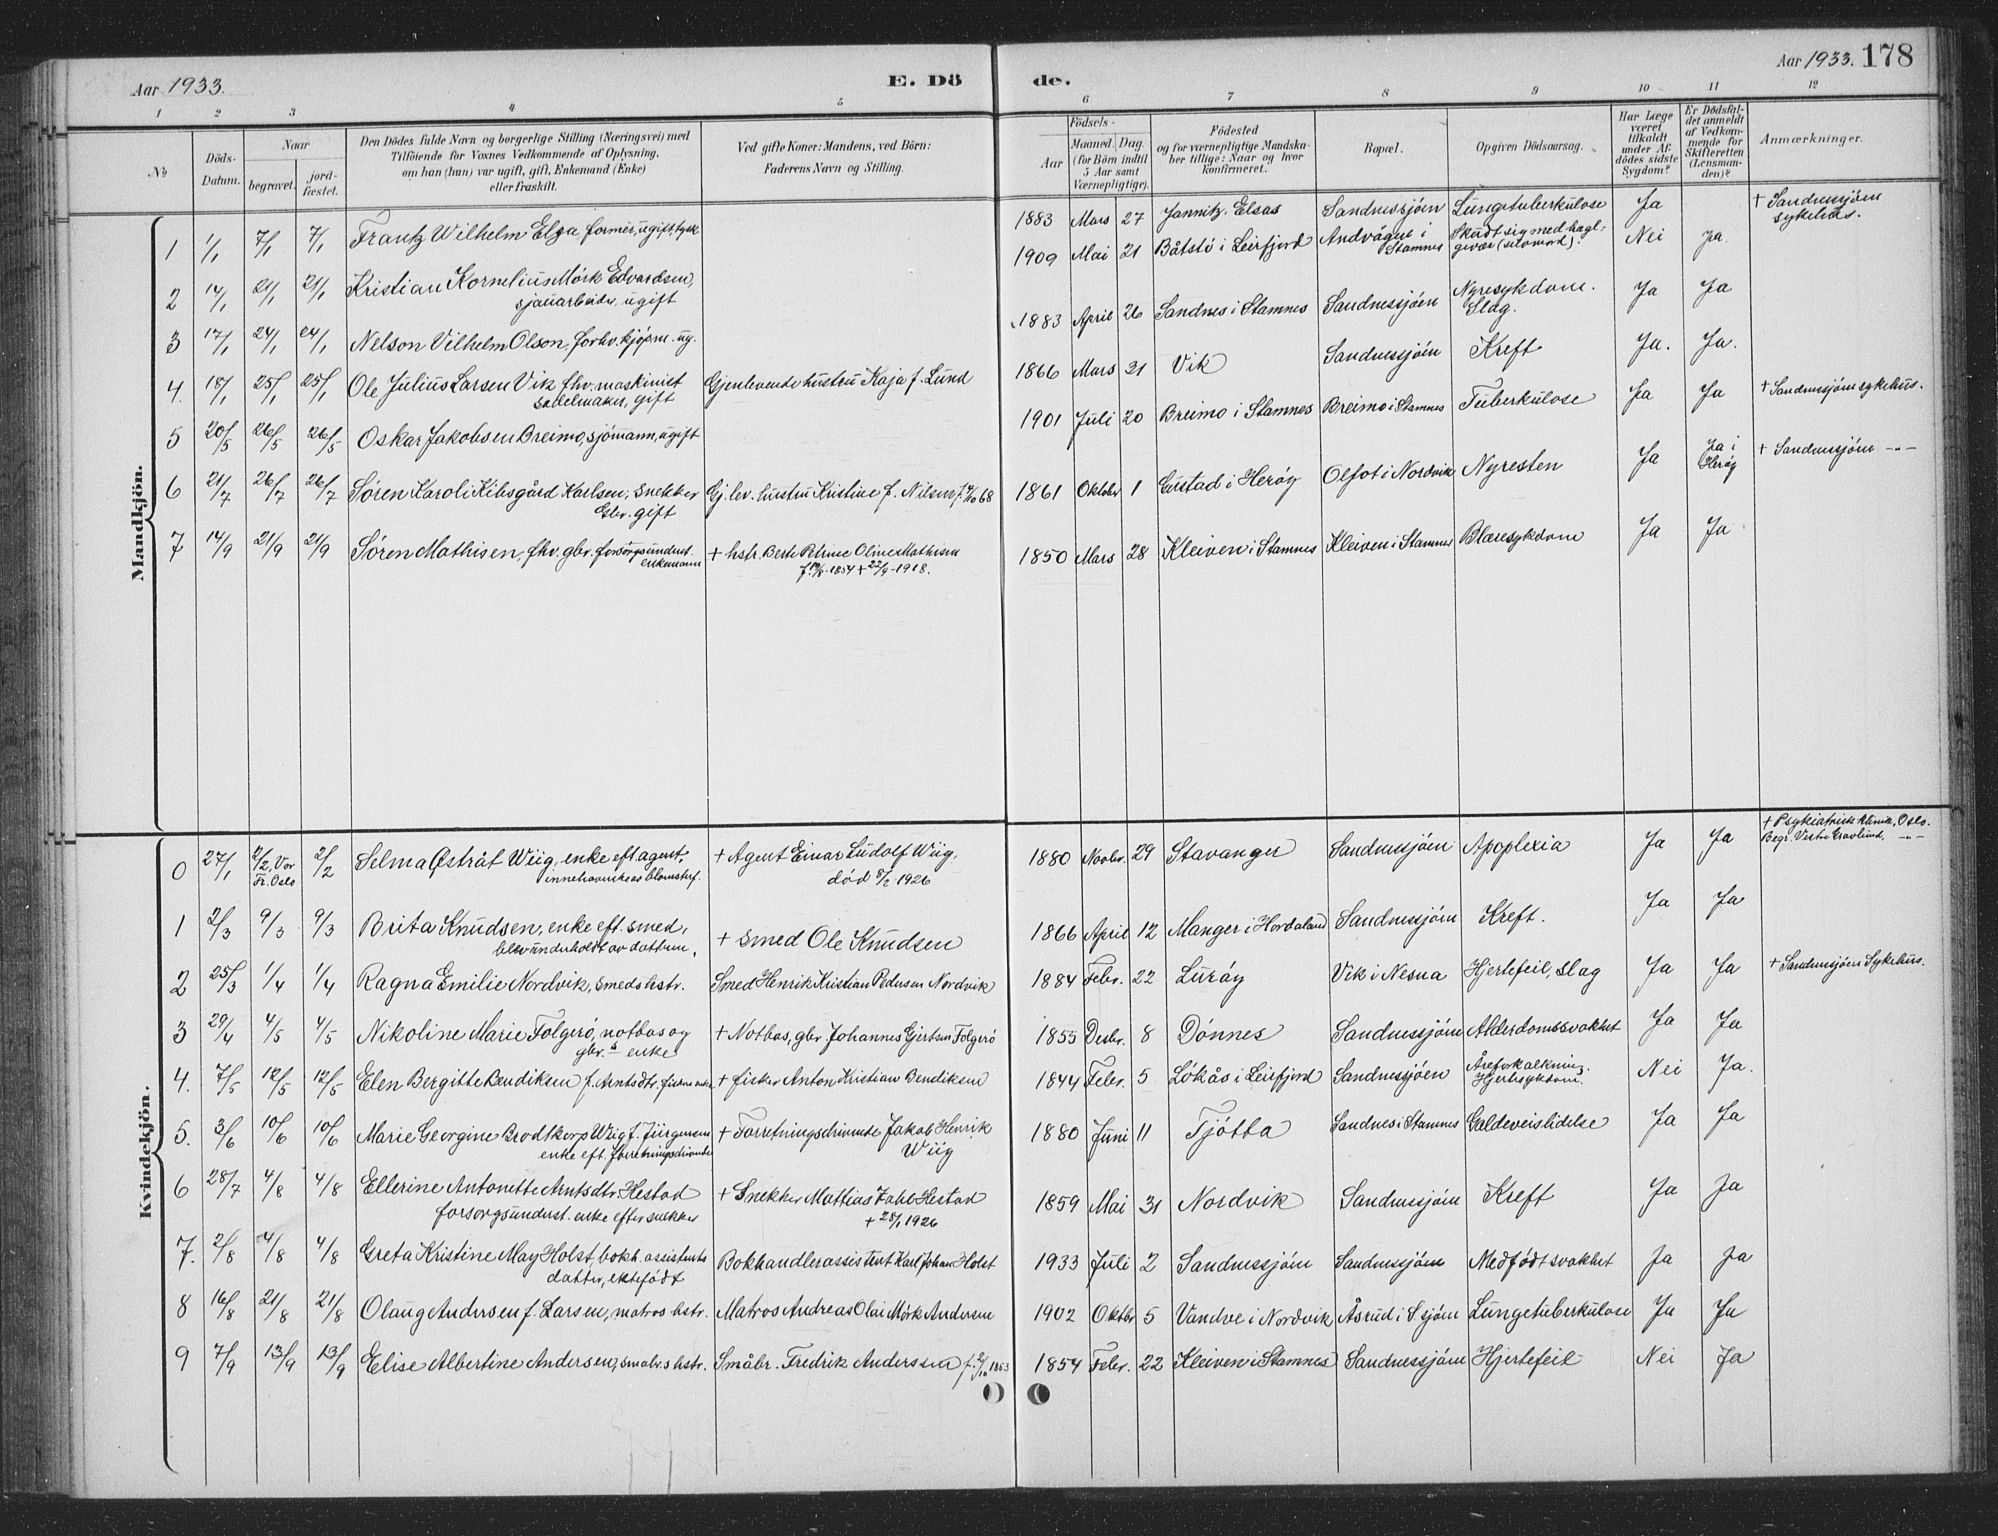 Aar 1933.
E. Dö
de.
Aar 1933. 178
1 2 3 4 5
6 7 8 9 10 11 12
No
Döds-Datum.
Naar
begravet.
jord-fæstet.
Den Dödes fulde Navn og borgerlige Stilling (Næringsvei) med
Tilföiende for Voxnes Vedkommende af Oplysning,
om han (hun) var ugift, gift, Enkemand (Enke)
eller fraskilt.
Ved gifte Koner: Mandens, ved Börn:
Faderens Navn og Stilling.
Födsels-
Aar
Maaned. Dag.
(for Börn indtil
5 Aar samt
Værnepligtige).
Födested
og for værnepligtige Mandska-
ber tillige: Naar og hvor
konfirmeret.
Bopæl.
Opgiven Dödsaarsag.
Har Læge
været
tilkaldt
under Af-
dödes sidste
Sygdom?
Er Dödsfal-
det anmeldt
af Vedkom-
mende for
Skifteretten
(Lensman-
den)?
Anmærkninger.
Mandkjön.
1 1/1 7/1 7/1 Frantz Wilhelm Elza former, ugift, tysk 1883 Mars 27 Jannitz. Elsas Sandnessjöen Lungetuberkulose Ja + Sandnessjöen
sykehus.
2 14/1 21/1 21/1 Kristian Kornelius Mörk Edvardsen, 1909 Mai 21 Båtstö i Leirfjord Andvågne i Skudt sig med hagl- Nei Ja.
sjauarbeider, ugift Stamnes gevær (selvmord).
3 17/1 24/1 24/1 Nelson Vilhelm Olson, forhv. kjöpm. ug. 1883 April 26 Sandnes i Stamnes Sandnessjöen Nyresykdom. Ja Ja
Slag.
4. 18/1 25/1 25/1 Ole Julius Larsen Vik fhv. maskinist Gjenlevende hustru Kaja f. Lund 1866 Mars 31 Vik Sandnessjöen Kreft Ja. Ja.
sadelmaker, gift
5 20/5 26/5 26/5 Oskar Jakobsen Breimo, sjömann, ugift 1901 Juli 20 Breimo i Stamnes Breimo i Stamnes Tuberkulose Ja Ja + Sandnessjöen sykehus.
6 21/7 26/7 26/7 Sören Karoli Kibsgård Karlsen, snekker Gj. lev. hustru Kristine f. Nilsen 1861 Oktober 1 Gustad i Heröy Olfot i Nordvik Nyresten Ja Ja i + Sandnessjöen -"-
Gbr. gift Heröy
7 14/9 21/9 21/9 Sören Mathisen, fhv. gbr. forsörgsunderst. + hstr. Berte Petrine Oline Mathisen 1850 Mars 28 Kleiven i Stamnes Kleiven i Stamnes Blæresykdom Ja Ja
enkemann 1854 + 22/9-1918.
Kvindekjön.
0 27/1 2/2, Vor 2/2 Selma Östråt Wiig, enke eft. agent, + Agent Einar Ludolf Wiig, 1880 Novbr. 29 Stavanger Sandnessjöen Apoplexia Ja Ja + Psykiatrisk klinik, Oslo.
Fr. Oslo innehaverske av blomsterf. död 8/2 1926 Begr. Vestre Gravlund, -"-
1 2/3 9/3 9/3 Brita Knudsen, enke eft. smed, + Smed Ole Knudsen 1866 April 12 Manger i Hordaland Sandnessjöen Kreft. Ja Ja
blev underholdt av datteren.
2 25/3 1/4 1/4 Ragna Emilie Nordvik, smeds hstr. Smed Henrik Kristian Pedersen Nordvik 1884 Febr. 22 Luröy Vik i Nesna Hjertefeil, slag Ja Ja + Sandnessjöen Sykehus.
3 29/4 4/5 4/5 Nikoline Marie Folgerö, notbas og + Notbas, gbr. Johannes Gjertsen Folgerö 1855 Desbr. 8 Dönnes Sandnessjöen Alderdomssvakhet Ja Ja
gbr.s enke
4. 7/5 12/5 12/5 Elen Bergitte Bendiksen f. Arntsdtr. fiskers enke + fisker Anton Kristian Bendiksen 1844 Febr. 5 Lökås i Leirfjord Sandnessjöen Åreforkalkning. Nei Ja.
Hjertesykdom.
5. 3/6 10/6 10/6 Marie Georgine Brodtkorp Wiig f. Jürgensen + Forretningsdrivende Jakob Henrik 1880 Juni 11 Tjötta Sandnes i Stamnes Galdeveislidelse Ja Ja
enke eft. forretningsdrivende Wiig
6 28/7 4/8 4/8 Ellerine Antonette Arntsdtr. Hestad + Snekker Mattias Zahl Hestad 1859 Mai 31 Nordvik Sandnessjöen Kreft Ja Ja
forsorgsunderst. enke efter snekker + 28/1 1926
7. 2/8 4/8 4/8 Greta Kristine May Holst, bokh. assistents Bokhandlerassistent Karl Johan Holst 1933 Juli 2 Sandnessjöen Sandnessjöen Medfödt svakhet Ja Ja
datter, ektefödt
8 16/8 21/8 21/8 Olaug Andersen f. Larsen, matros hstr. Matros Andreas Olai Mörk Andersen 1902 Oktbr 5 Vandve i Nordvik Åsrud i S.sjöen Lungetuberkulose Ja Ja
9 7/9 13/9 13/9 Elise Albertine Andersen, småbr.s hstr. Småbr. Fredrik Anderssen f. 2/10 1853 1854 Febr. 22 Kleiven i Stamnes Sandnessjöen Hjertefeil Nei Ja